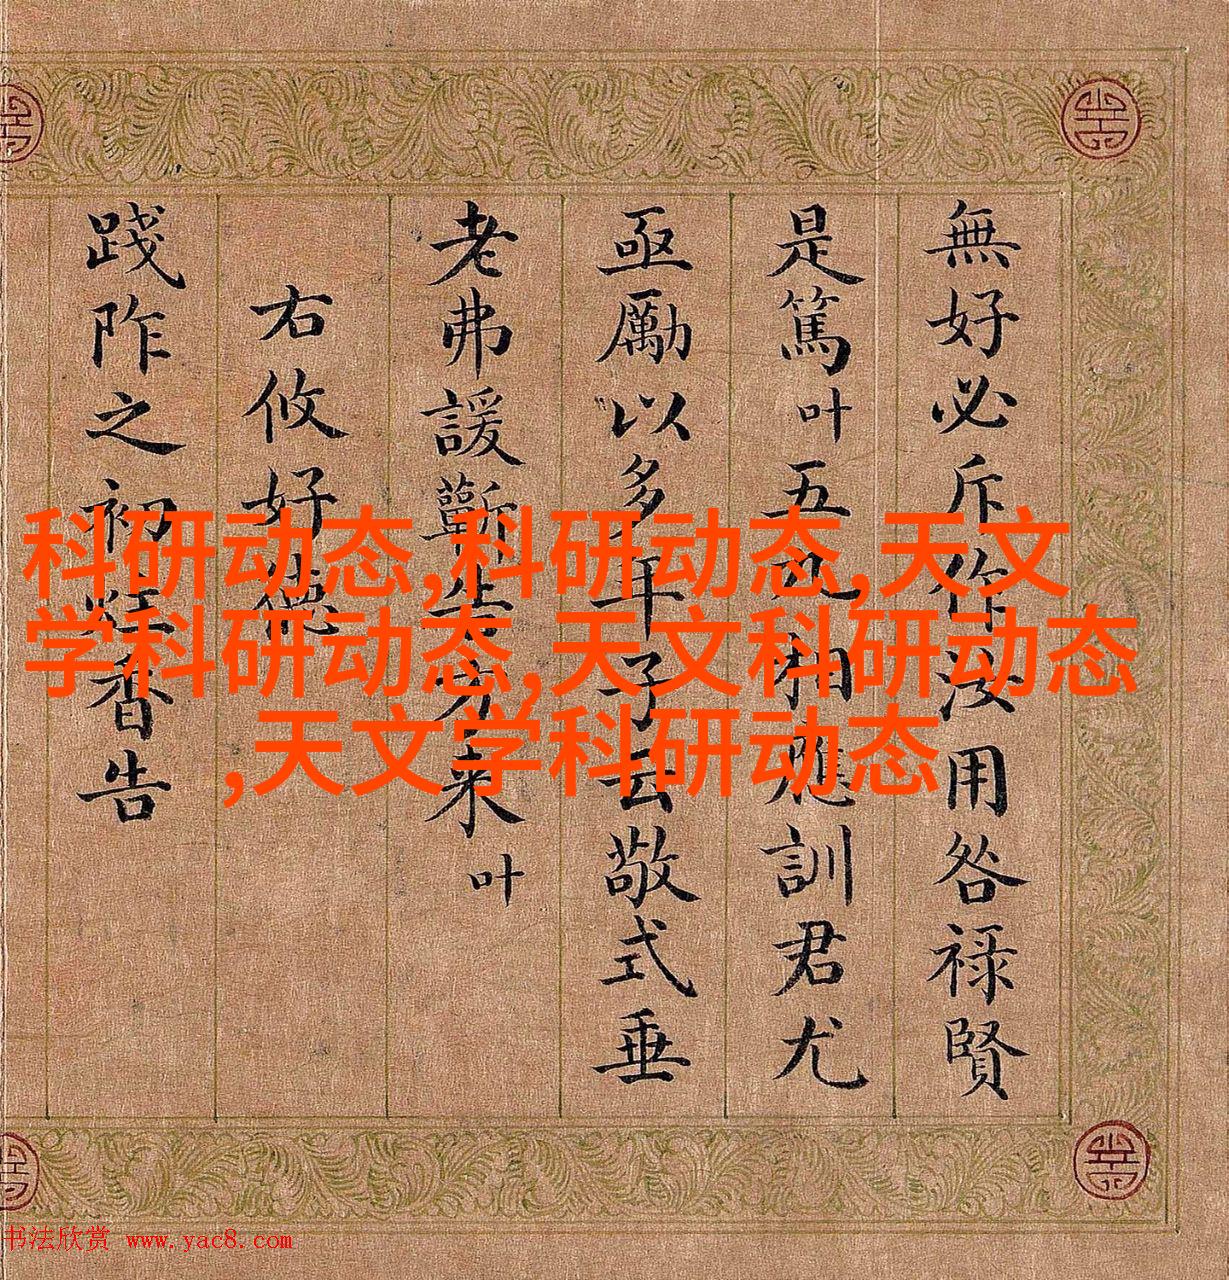 無好必斥作汝用咎禄賢
是篤叶五又相應訓君尤
亟勵以多年子云敬式垂
老弗諼蘄告方来叶
右攸好德
踐阼之初炷香告
科研动态,科研动态,天文
学科研动态,天文科研动态
,天文学科研动态
书法欣赏 www.yac8.com